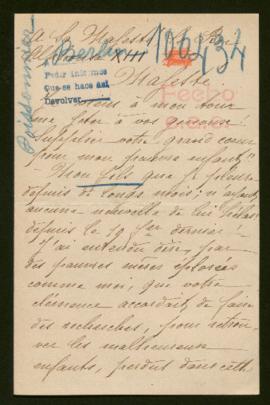 A Sa Majesté le Roi
Alphonse XIII
Berlin
106,434
Poissonnier
Pedir informes
Que se hace así
Devolver
Fecho
Majesté,
Viens à mon tour
me jeter à vos genoux!
Supplier votre grand cœur
pour mon pauvre enfant!
Mon fils que je pleure
depuis de longs mois; n'ayant
aucune nouvelle de lui hélas!
depuis le 19 dernier!
J'ai entendu dire, par
des pauvres mères éplorées
comme moi, que votre
clémence accordait de faire
des recherches, pour retrou-
ver les malheureux
enfants, perdus dans cette